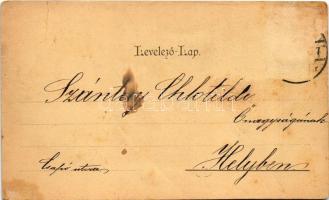 Levelező-Lap.
Szántay Chlotilde
Őnagyságának
Csapó utcza
Helyben